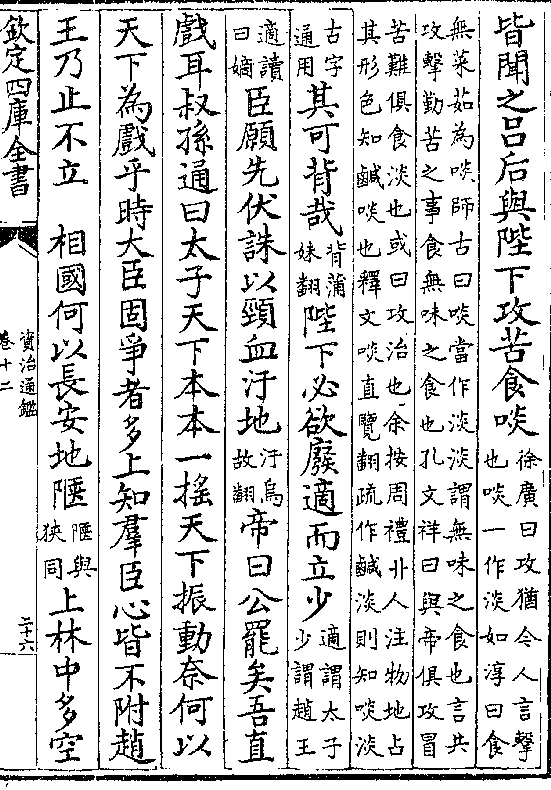 皆聞之吕后與陛下攻苦食啖徐廣曰攻猶今人言擊也啖一作淡如淳曰食
無菜茹為啖師古曰啖當作淡淡謂無味之食也言共攻擊勤苦之事食無味之食也孔文祥曰與帝俱攻冒
苦難俱食淡也或曰攻治也余按周禮丱人注物地占其形色知鹹啖也釋文啖直覽翻疏作鹹淡則知啖淡
古字通用其可背哉背蒲妹翻陛下必欲廢適而立少適謂太子少謂趙王
適讀曰嫡臣願先伏誅以頸血汙地汙烏故翻帝曰公罷矣吾直
戲耳叔孫通曰太子天下本本一搖天下振動奈何以
天下為戲乎時大臣固爭者多上知羣臣心皆不附趙
王乃止不立　相國何以長安地陿陿與狹同上林中多空
欽定四庫全書
資治通鑑
卷十二
二十六